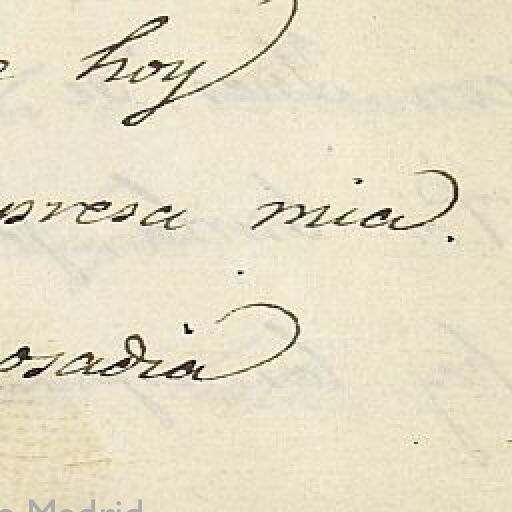 e hoy
presa mia.
osadia
o Madrid